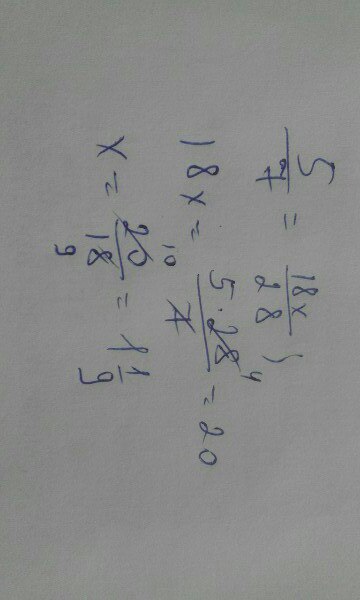 5/7 = 18x/28 ;
18x = 5·28/7 4 = 20
x = 20/18 10 9 = 1 1/9